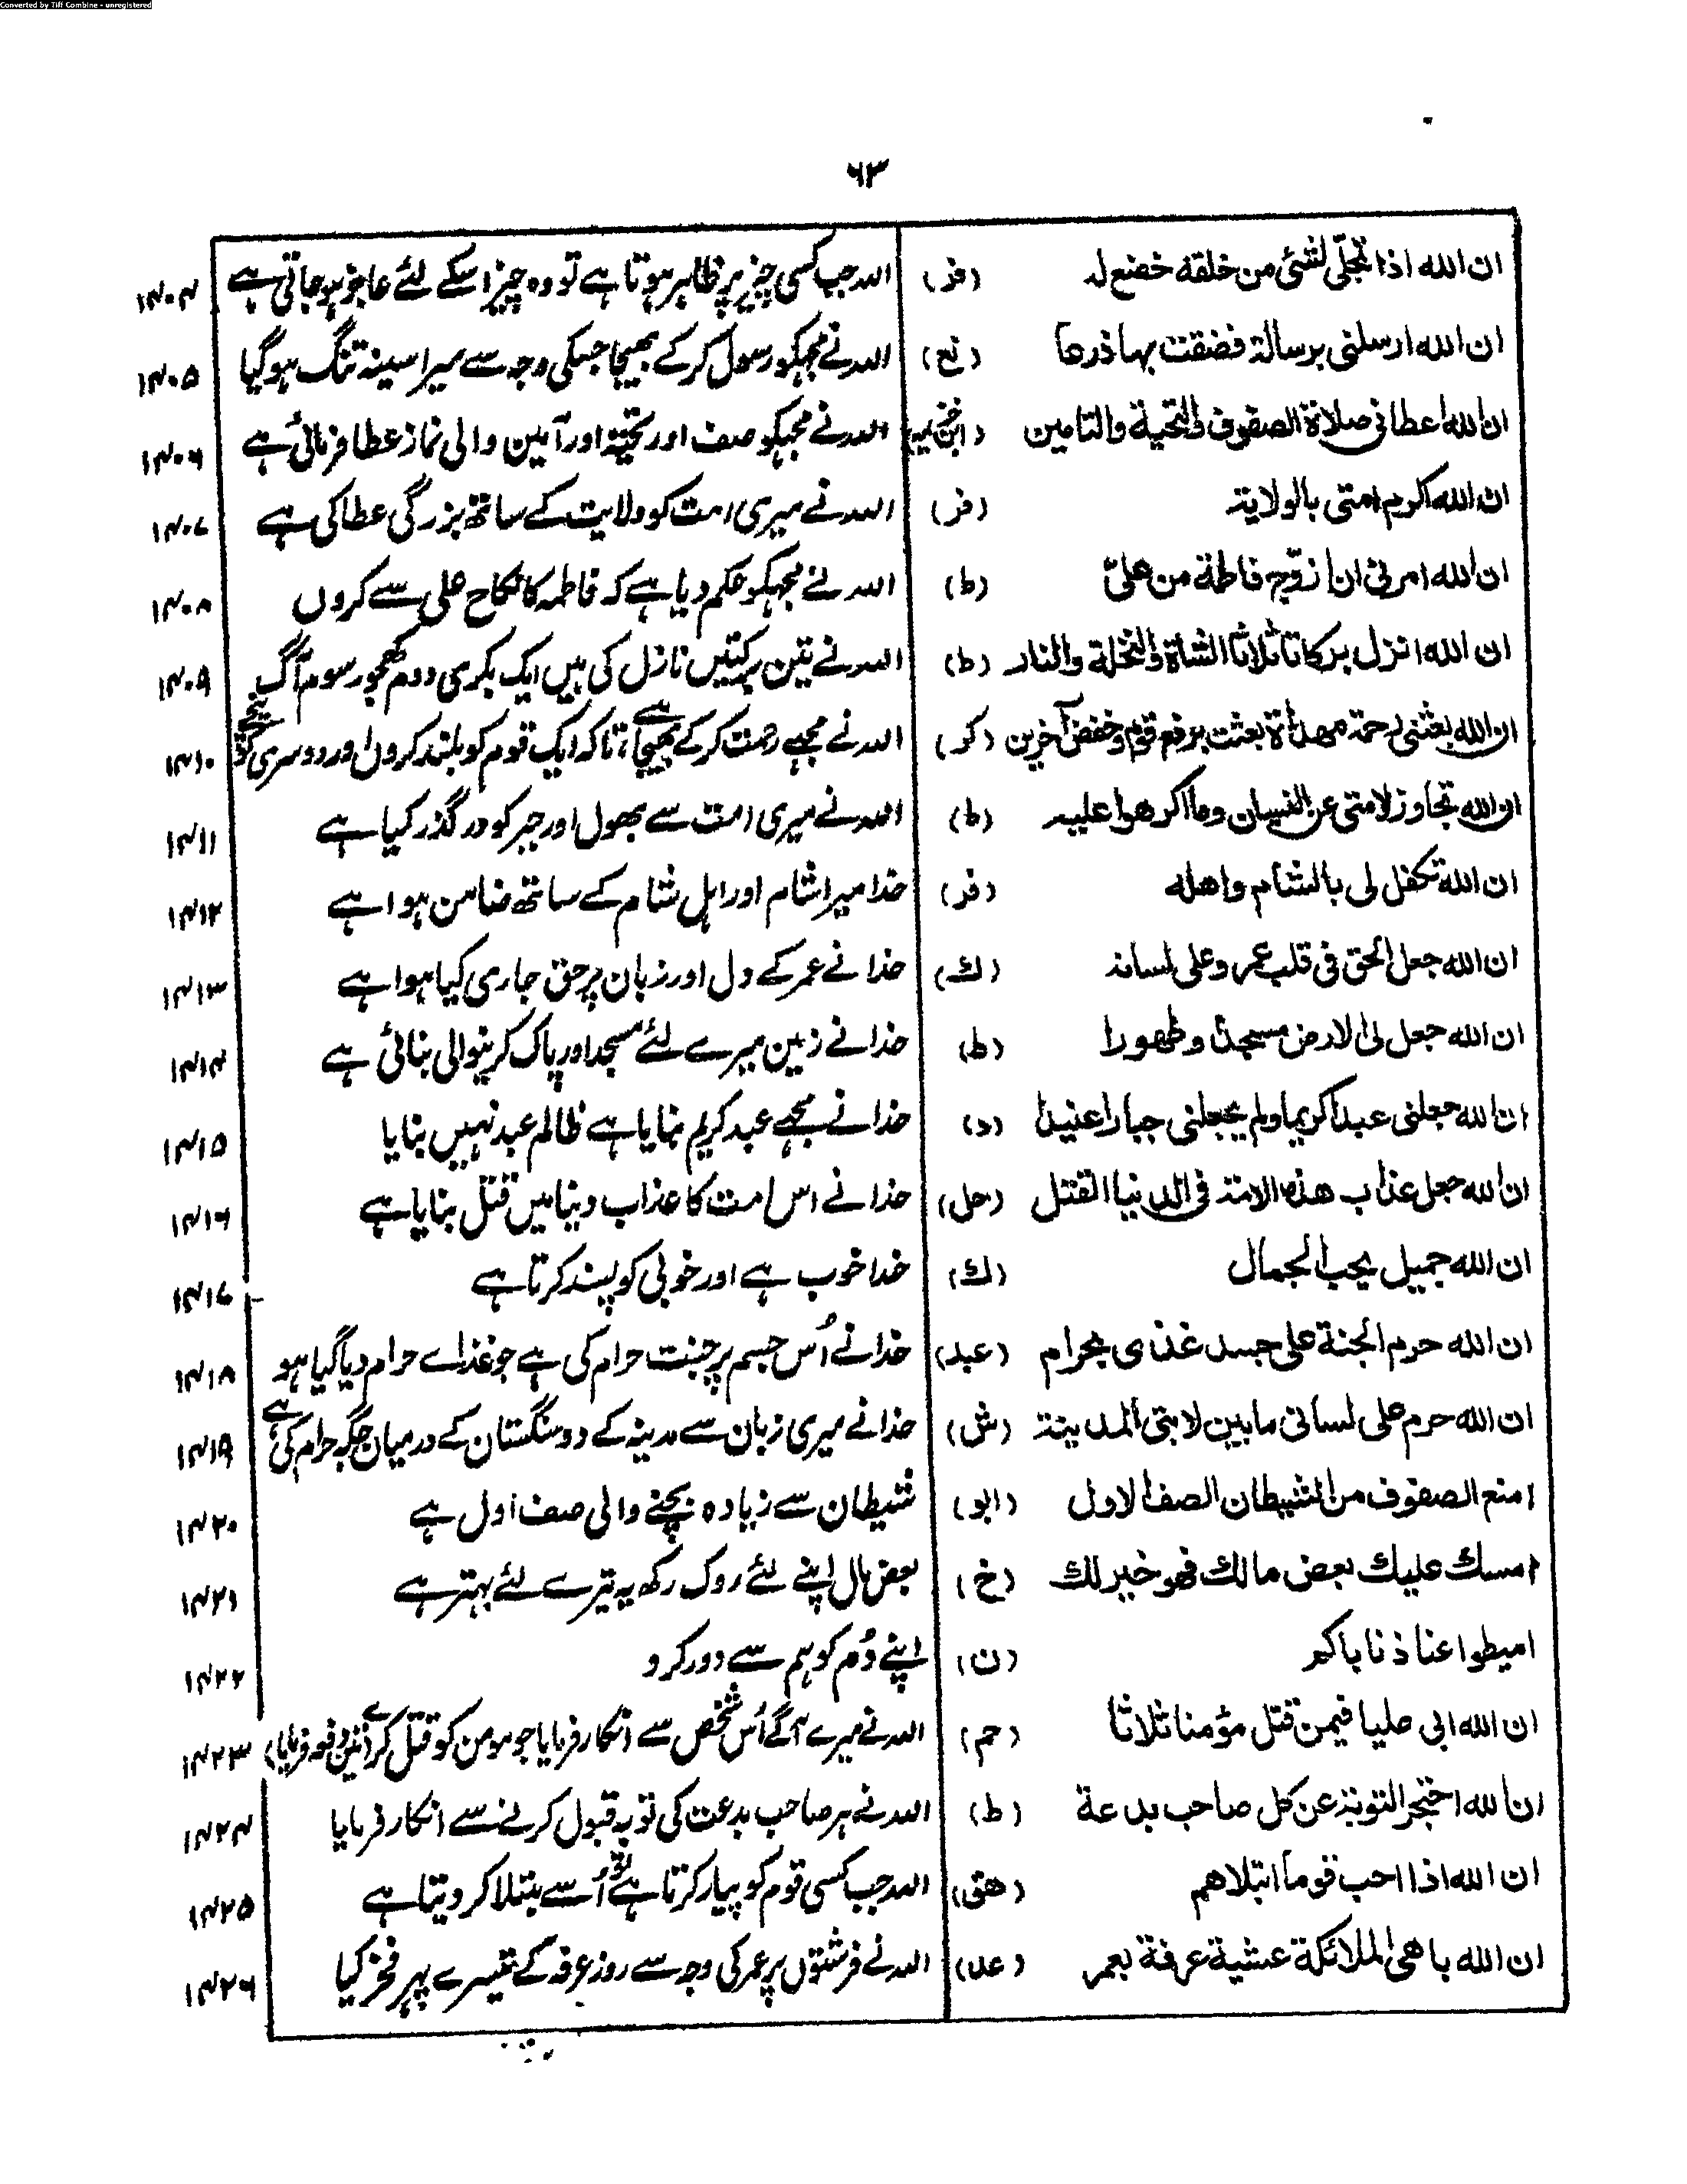 Converted by Tiff Combine - unregistered
٦٣
ان الله اذا تجلّی لشئ من خلقه خضع له (فر) اللہ جب کسی چیز پر ظاہر ہوتا ہے تو وہ چیز اسکے لئے عاجز ہو جاتی ہے ۱۴۰۴
ان الله ارسلنی برسالة فضقت بها ذرعا (نع) اللہ نے مجہکو رسول کرکے بھیجا جسکی وجہ سے میرا سینہ تنگ ہو گیا ۱۴۰۵
ان الله اعطانی صلاة الصفوف والتحیة والتامین (ابن خزیمہ) اللہ نے مجہکو صف اور تحیۃ اور آمین والی نماز عطا فرمائی ہے ۱۴۰۶
ان الله اکرم امتی بالولایة (فر) اللہ نے میری امت کو ولایت کے ساتھ بزرگی عطا کی ہے ۱۴۰۷
ان الله امرنی ان ازوّج فاطمة من علیّ (ط) اللہ نے مجہکو حکم دیا ہے کہ فاطمہ کا نکاح علی سے کروں ۱۴۰۸
ان الله انزل برکاتا ثلاثا الشاة والنخلة والنار (ط) اللہ نے تین برکتیں نازل کی ہیں ایک بکری دوم کھجور سوم آگ ۱۴۰۹
ان الله بعثنی رحمة مهداة بعثت برفع قوم وخفض آخرین (کر) اللہ نے مجہے رحمت کرکے بھیجا ہے تاکہ ایک قوم کو بلند کروں اور دوسری کو نیچے ۱۴۱۰
ان الله تجاوز لامتی عن النسیان وما اکرهوا علیه (ط) اللہ نے میری امت سے بھول اور جبر کو درگذر کیا ہے ۱۴۱۱
ان الله تکفل لی بالشام واهله (فر) خدا میرا شام اور اہل شام کے ساتھ ضامن ہوا ہے ۱۴۱۲
ان الله جعل الحق فی قلب عمر وعلی لسانه (ك) خدا نے عمر کے دل اور زبان پر حق جاری کیا ہوا ہے ۱۴۱۳
ان الله جعل لی الارض مسجدا وطهورا (ط) خدا نے زمین میرے لئے مسجد اور پاک کرنیوالی بنائی ہے ۱۴۱۴
ان الله جعلنی عبدا کریما ولم یجعلنی جبارا عنیدا (د) خدا نے مجہے عبد کریم بنایا ہے ظالم عبد نہیں بنایا ۱۴۱۵
ان الله جعل عذاب هذه الامة فی الدنیا القتل (حل) خدا نے اس امت کا عذاب دنیا میں قتل بنایا ہے ۱۴۱۶
ان الله جمیل یحب الجمال (ك) خدا خوب ہے اور خوبی کو پسند کرتا ہے ۱۴۱۷
ان الله حرم الجنة علی جسد غذی بحرام (عبد) خدا نے اُس جسم پر جنت حرام کی ہے جو غذاے حرام دیا گیا ہو ۱۴۱۸
ان الله حرم علی لسانی ما بین لابتی المدینة (ش) خدا نے میری زبان سے مدینہ کے دو سنگستان کے درمیان جگہ حرام کی ہے ۱۴۱۹
امنع الصفوف من الشیطان الصف الاول (ابو) شیطان سے زیادہ بچنے والی صف اول ہے ۱۴۲۰
امسك علیك بعض مالك فهو خیر لك (خ) بعض مال اپنے لئے روک رکھ یہ تیرے لئے بہتر ہے ۱۴۲۱
امیطوا عنا ذنابا کم (ن) اپنے دُم کو ہم سے دور کرو ۱۴۲۲
ان الله ابی علیا فیمن قتل مؤمنا ثلاثا (حم) اللہ نے میرے آگے اُس شخص سے انکار فرمایا جو مومن کو قتل کرے (تین دفعہ فرمایا) ۱۴۲۳
ان الله احتجر التوبة عن کل صاحب بدعة (ط) اللہ نے ہر صاحب بدعت کی توبہ قبول کرنے سے انکار فرمایا ۱۴۲۴
ان الله اذا احب قوما ابتلاهم (هق) اللہ جب کسی قوم کو پیار کرتا ہے تو اُسے مبتلا کر دیتا ہے ۱۴۲۵
ان الله باهی الملائکة عشیة عرفة بعمر (عد) اللہ نے فرشتوں پر عمر کی وجہ سے روز عرفہ کے تیسرے پہر فخر کیا ۱۴۲۶